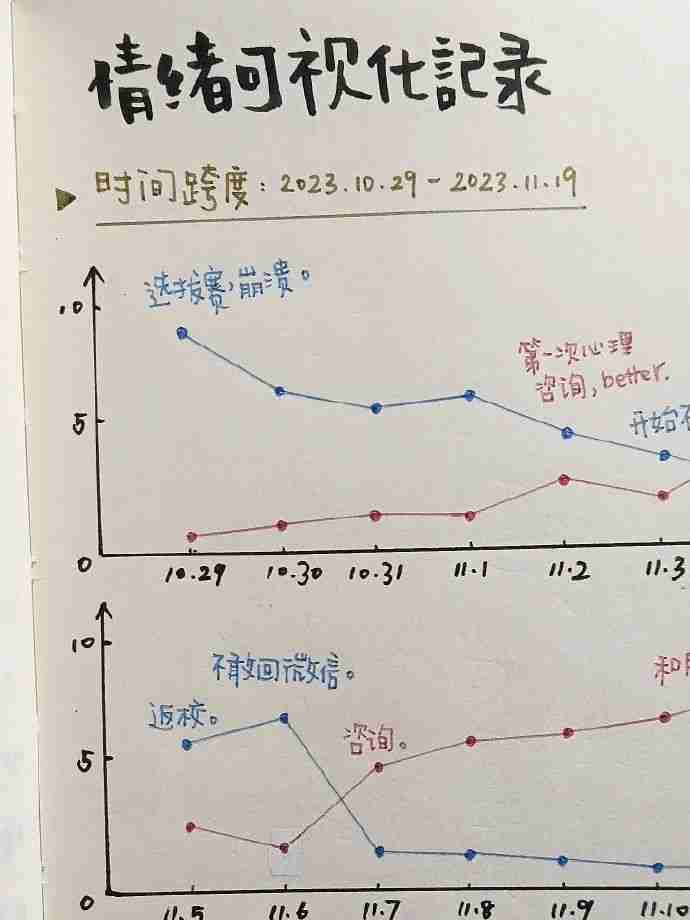 情绪可视化記录
时间跨度：2023.10.29 - 2023.11.19
选拔赛，崩溃。
10
第一次心理
咨询，better.
开始
5
0
10.29 10.30 10.31 11.1 11.2 11.3
10
不敢回微信。
和
返校。
咨询。
5
0
11.5 11.6 11.7 11.8 11.9 11.10